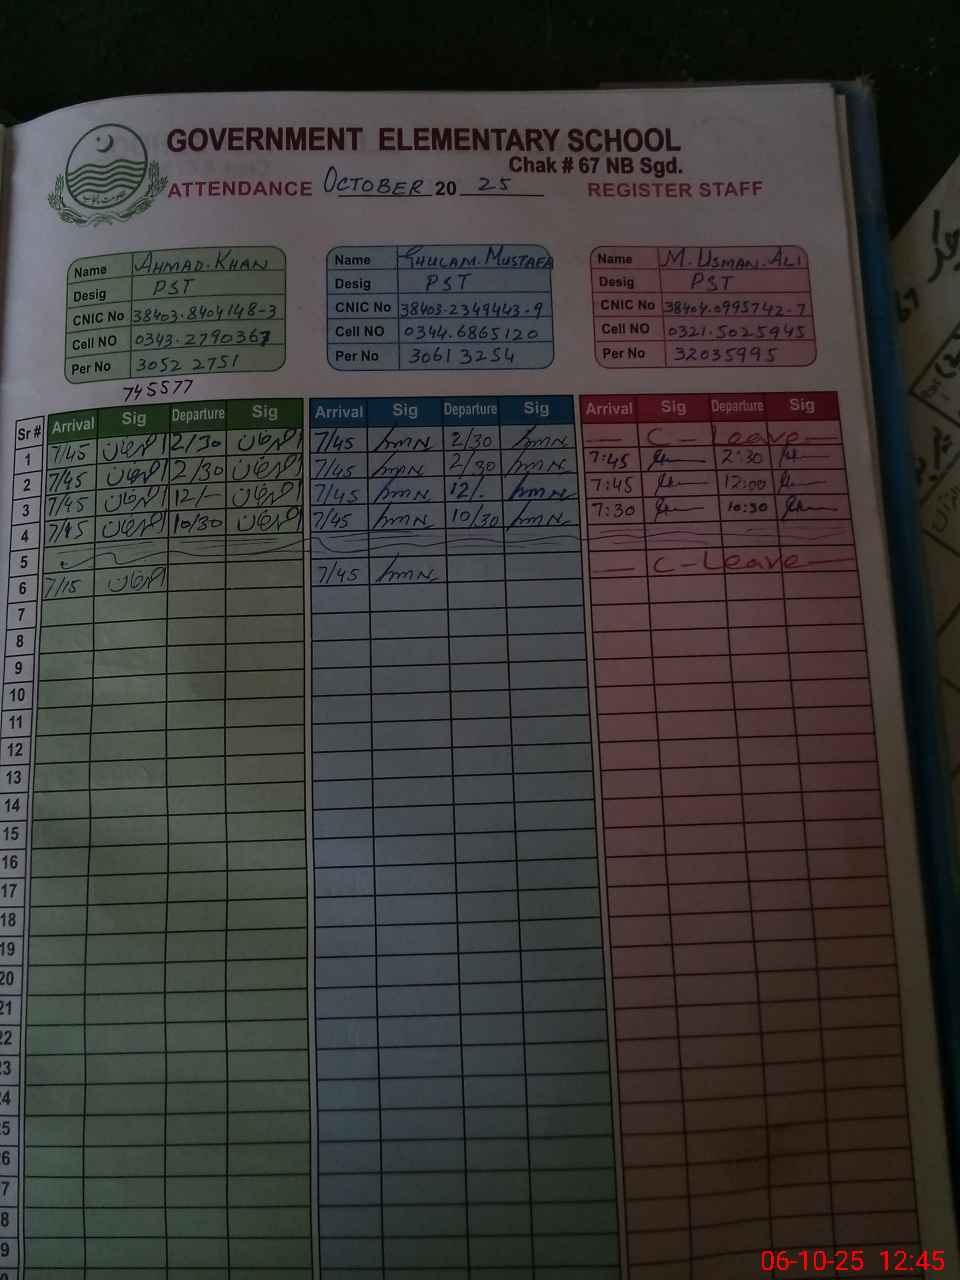 GOVERNMENT ELEMENTARY SCHOOL
Chak # 67 NB Sgd.
ATTENDANCE OCTOBER 20 25 REGISTER STAFF
Name AHMAD.KHAN
Desig PST
CNIC No 38403.8404148-3
Cell NO 0343.2790367
Per No 3052 2751
745577
Name GHULAM.MUSTAFA
Desig PST
CNIC No 38403.2349443.9
Cell NO 0344.6865120
Per No 3061 3254
Name M.USMAN.ALI
Desig PST
CNIC No 38404.0995742.7
Cell NO 0321.5025945
Per No 32035995
Sr # Arrival Sig Departure Sig Arrival Sig Departure Sig Arrival Sig Departure Sig
1 7/45 2/30 7/45 2/30 — C - Leave —
2 7/45 2/30 7/45 2/30 7:45 2:30
3 7/45 12/- 7/45 12/. 7:45 12:00
4 7/45 10/30 7/45 10/30 7:30 10:30
5
6 7/15 7/45 — C - Leave —
7
8
9
10
11
12
13
14
15
16
17
18
19
20
21
22
23
24
25
26
7
8
9
06-10-25 12:45